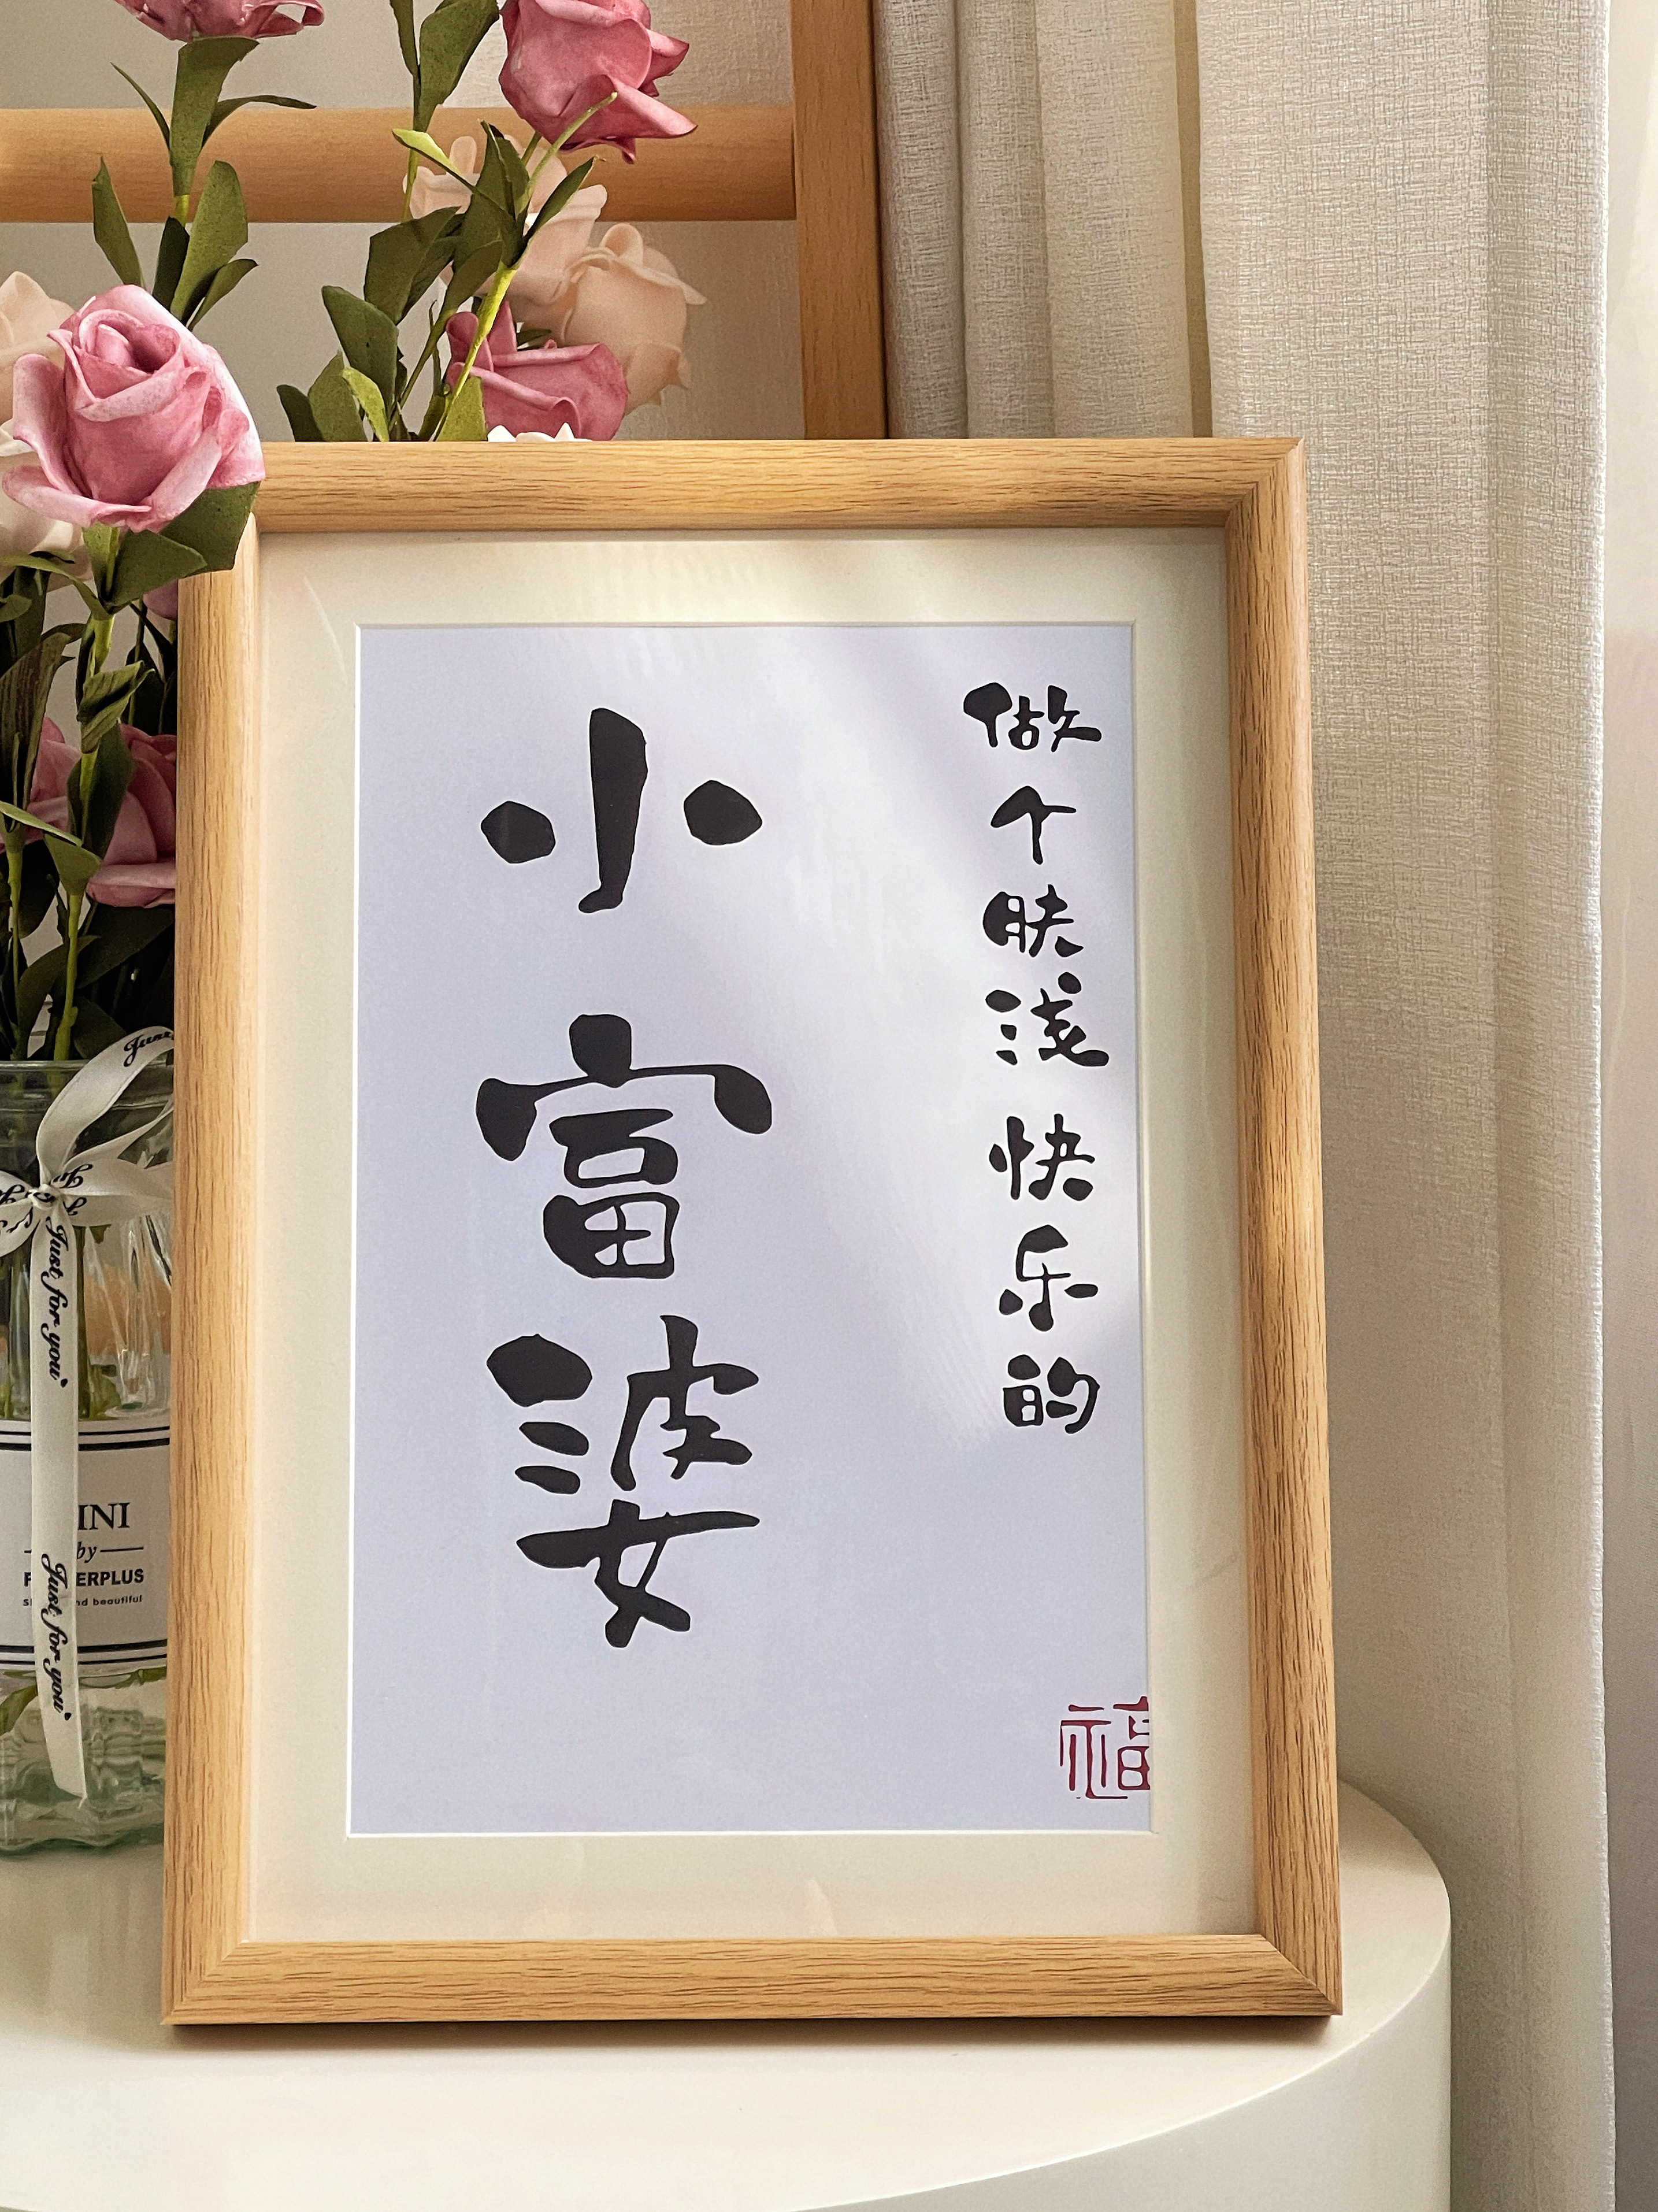 做个肤浅 快乐的
小富婆
福
Just for you
Just for you
INI
by
ERPLUS
nd beautiful